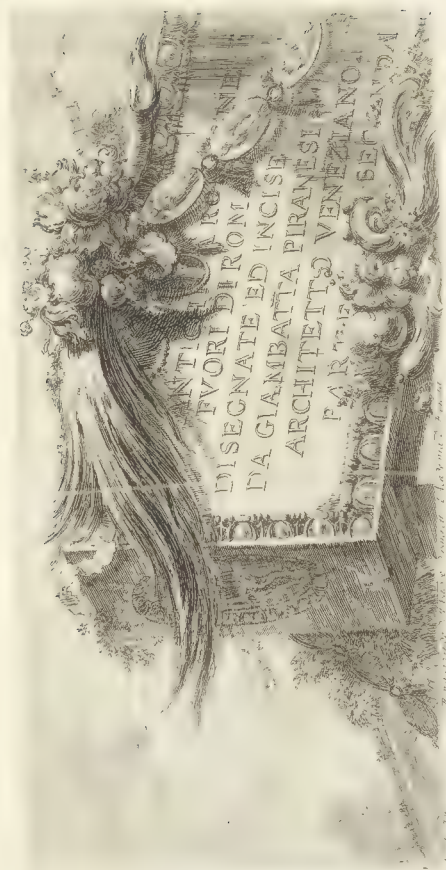 ANTI NE
FVORI DI ROM
DISEGNATE ED INCISE
DA GIAMBATTA PIRANESI
ARCHITETTO VENEZIANO
PARTE SECONDA